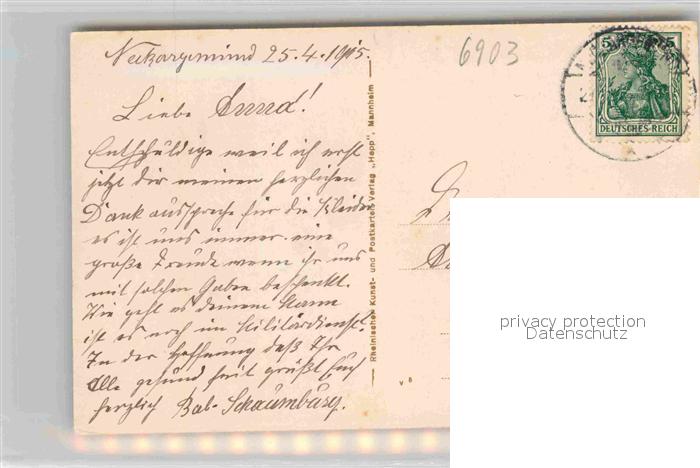 Neckargemünd 25.4.1915.
6903
Liebe Anna!
Entschuldige weil ich erst
jetzt dir meinen herzlichen
Dank ausspreche für die Kleider
es ist uns immer eine
große Freude wenn ihr uns
mit solchen Gaben beschenkt.
Wie geht es deinem Mann
ist es noch im Militärdienst.
In der Hoffnung daß Ihr
Alle gesund seit grüßt Euch
herzlich Bab. Schaumburg.
Rheinischer Kunst- und Postkarten Verlag „Hepp", Mannheim
V 8
5 5
DEUTSCHES-REICH
privacy protection
Datenschutz